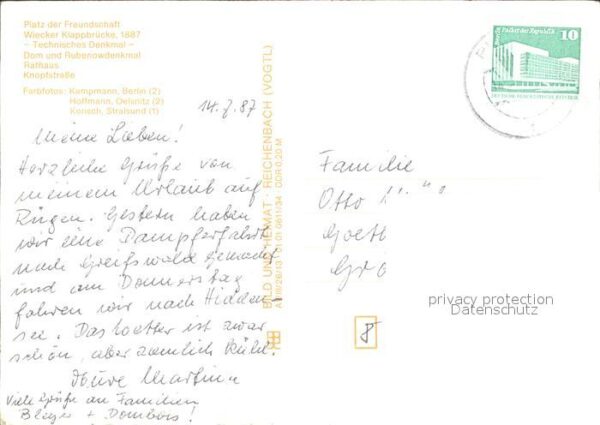 Platz der Freundschaft
Wiecker Klappbrücke, 1887
– Technisches Denkmal –
Dom und Rubenowdenkmal
Rathaus
Knopfstraße
Farbfotos: Kampmann, Berlin (2)
Hoffmann, Oelsnitz (2)
Korisch, Stralsund (1)
14.7.87
Meine Lieben!
Herzliche Grüße von
meinem Urlaub auf
Rügen. Gestern haben
wir eine Dampferfahrt
nach Greifswald gemacht
und am Donnerstag
fahren wir nach Hidden-
see. Das Wetter ist zwar
schön, aber ziemlich kühl.
Eure
Viele Grüße an Familien
+
BILD UND HEIMAT REICHENBACH (VOGTL)
DDR 0,20 M
Palast der Republik
10
DEUTSCHE DEMOKRATISCHE REPUBLIK
Familie
Otto
Goet
Grö
privacy protection
Datenschutz
8